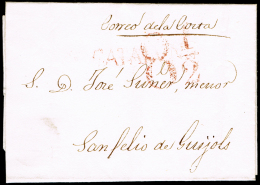 Correo de la Costa
CATALUÑA
S. D. José Suñer, menor
San felio de Guijols